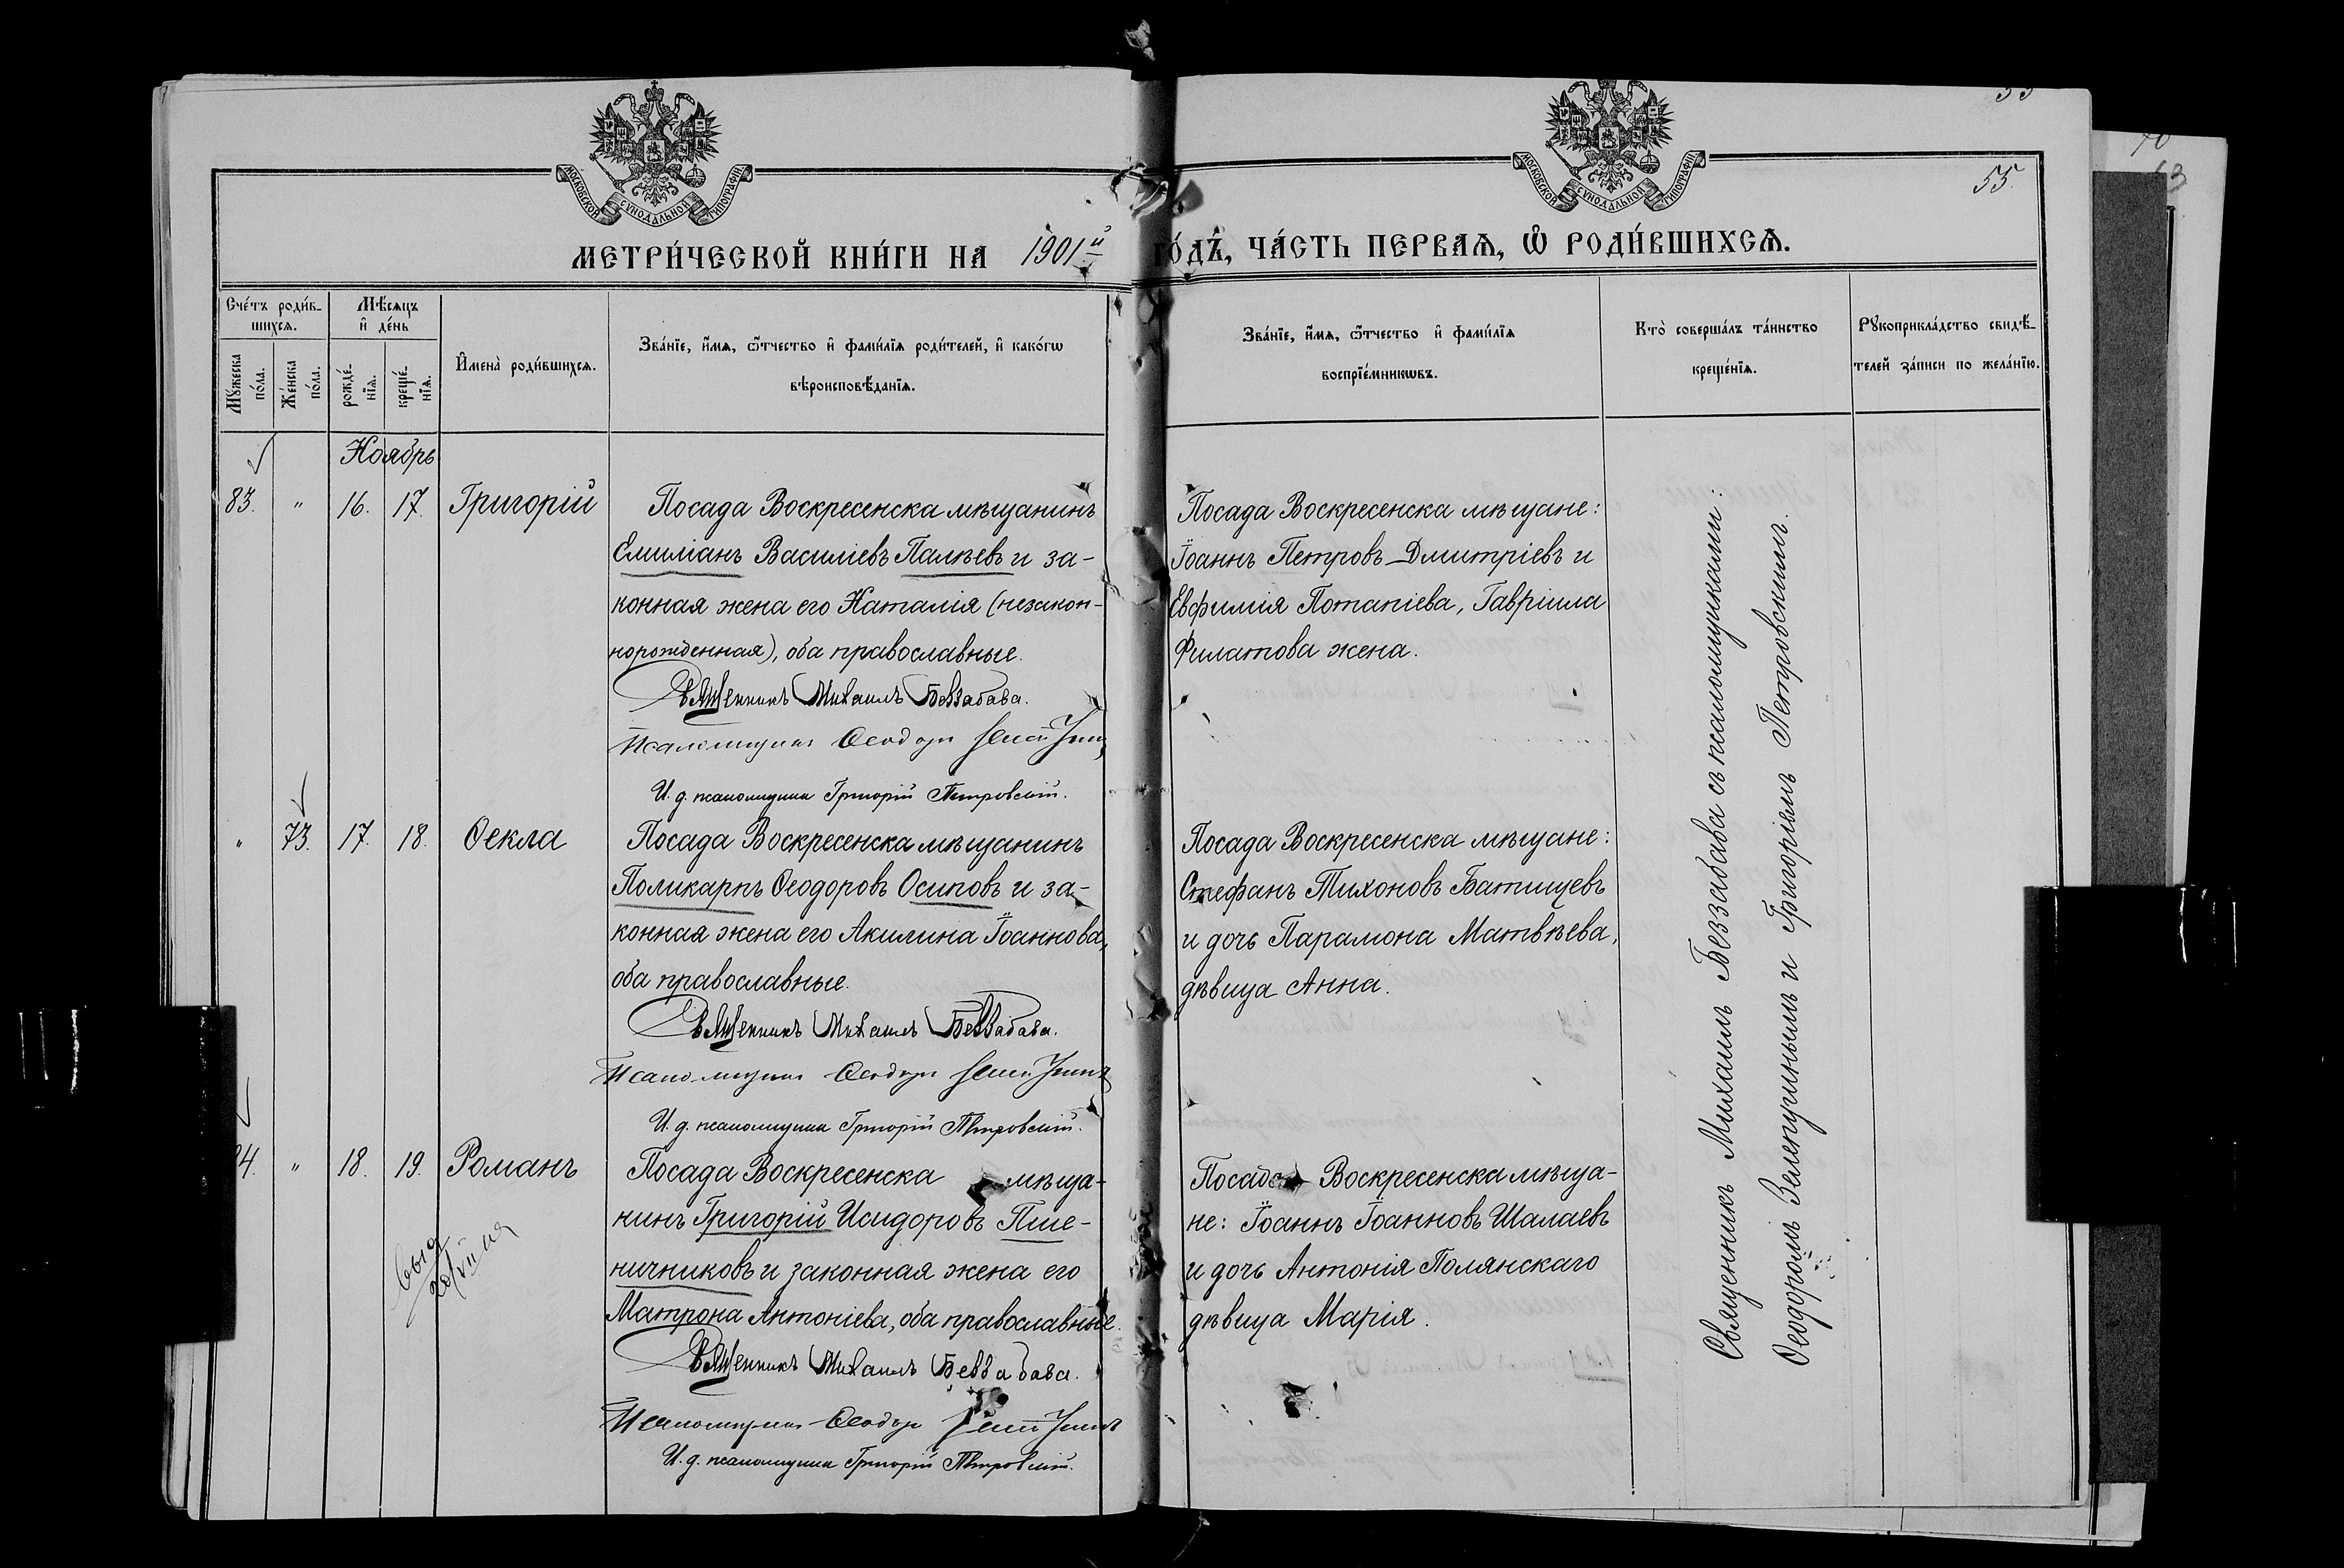 55
МОСКОВСКОЙ СѴНОДАЛЬНОЙ ТИПОГРАФІИ
МОСКОВСКОЙ СѴНОДАЛЬНОЙ ТИПОГРАФІИ
55.
МЕТРИ́ЧЕСКОЙ КНИ́ГИ НА 1901й ГО́ДЪ, ЧА́СТЬ ПЕРВАѦ, Ѡ҆ РОДИ́ВШИХСѦ.
Сче́тъ роди́в-
шихсѧ.
Мꙋ́жеска
по́ла.
Же́нска
по́ла.
Мѣ́сѧцъ
и҆ де́нь
рожде́-
нїѧ.
креще́-
нїѧ.
И҆мена̀ роди́вшихсѧ.
Зва́нїе, и҆́мѧ, ѻ҆́тчество и҆ фами́лїѧ роди́телей, и҆ како́гѡ
вѣроисповѣ́данїѧ.
Зва́нїе, и҆́мѧ, ѻ҆́тчество и҆ фами́лїѧ
воспрїе́мникѡвъ.
Кто̀ соверша́лъ та́инство
креще́нїѧ.
Рꙋкоприкла́дство свидѣ́-
телей за́писи по жела́нїю.
Ноябрь
83. " 16. 17. Григорій
Посада Воскресенска мѣщанинъ
Емиліанъ Василіевъ Палѣевъ и за-
конная жена его Наталія (незакон-
норожденная), оба православные.
Священникъ Михаилъ Беззабава.
Псаломщикъ Ѳеодоръ
И. д. псаломщика Григорій Петровскій.
Посада Воскресенска мѣщане:
Іоаннъ Петровъ Дмитріевъ и
Евфимія Потапіева, Гавріила
Филатова жена.
" 73. 17. 18. Ѳекла
Посада Воскресенска мѣщанинъ
Поликарпъ Ѳеодоровъ Осиповъ и за-
конная жена его Акилина Іоаннова,
оба православные.
Священникъ Михаилъ Беззабава.
Псаломщикъ Ѳеодоръ
И. д. псаломщика Григорій Петровскій.
Посада Воскресенска мѣщане:
Стефанъ Тихоновъ Батищевъ
и дочь Парамона Матвѣева,
дѣвица Анна.
4. " 18. 19. Романъ
Посада Воскресенска мѣща-
нинъ Григорій Исидоровъ Пше-
ничниковъ и законная жена его
Матрона Антоніева, оба православные.
Священникъ Михаилъ Беззабава.
Псаломщикъ Ѳеодоръ
И. д. псаломщика Григорій Петровскій.
Посада Воскресенска мѣща-
не: Іоаннъ Іоанновъ Шалаевъ
и дочь Антонія Полянскаго
дѣвица Марія.
Священникъ Михаилъ Беззабава съ псаломщиками:
Ѳеодоромъ Зелепугинымъ и Григоріемъ Петровскимъ.